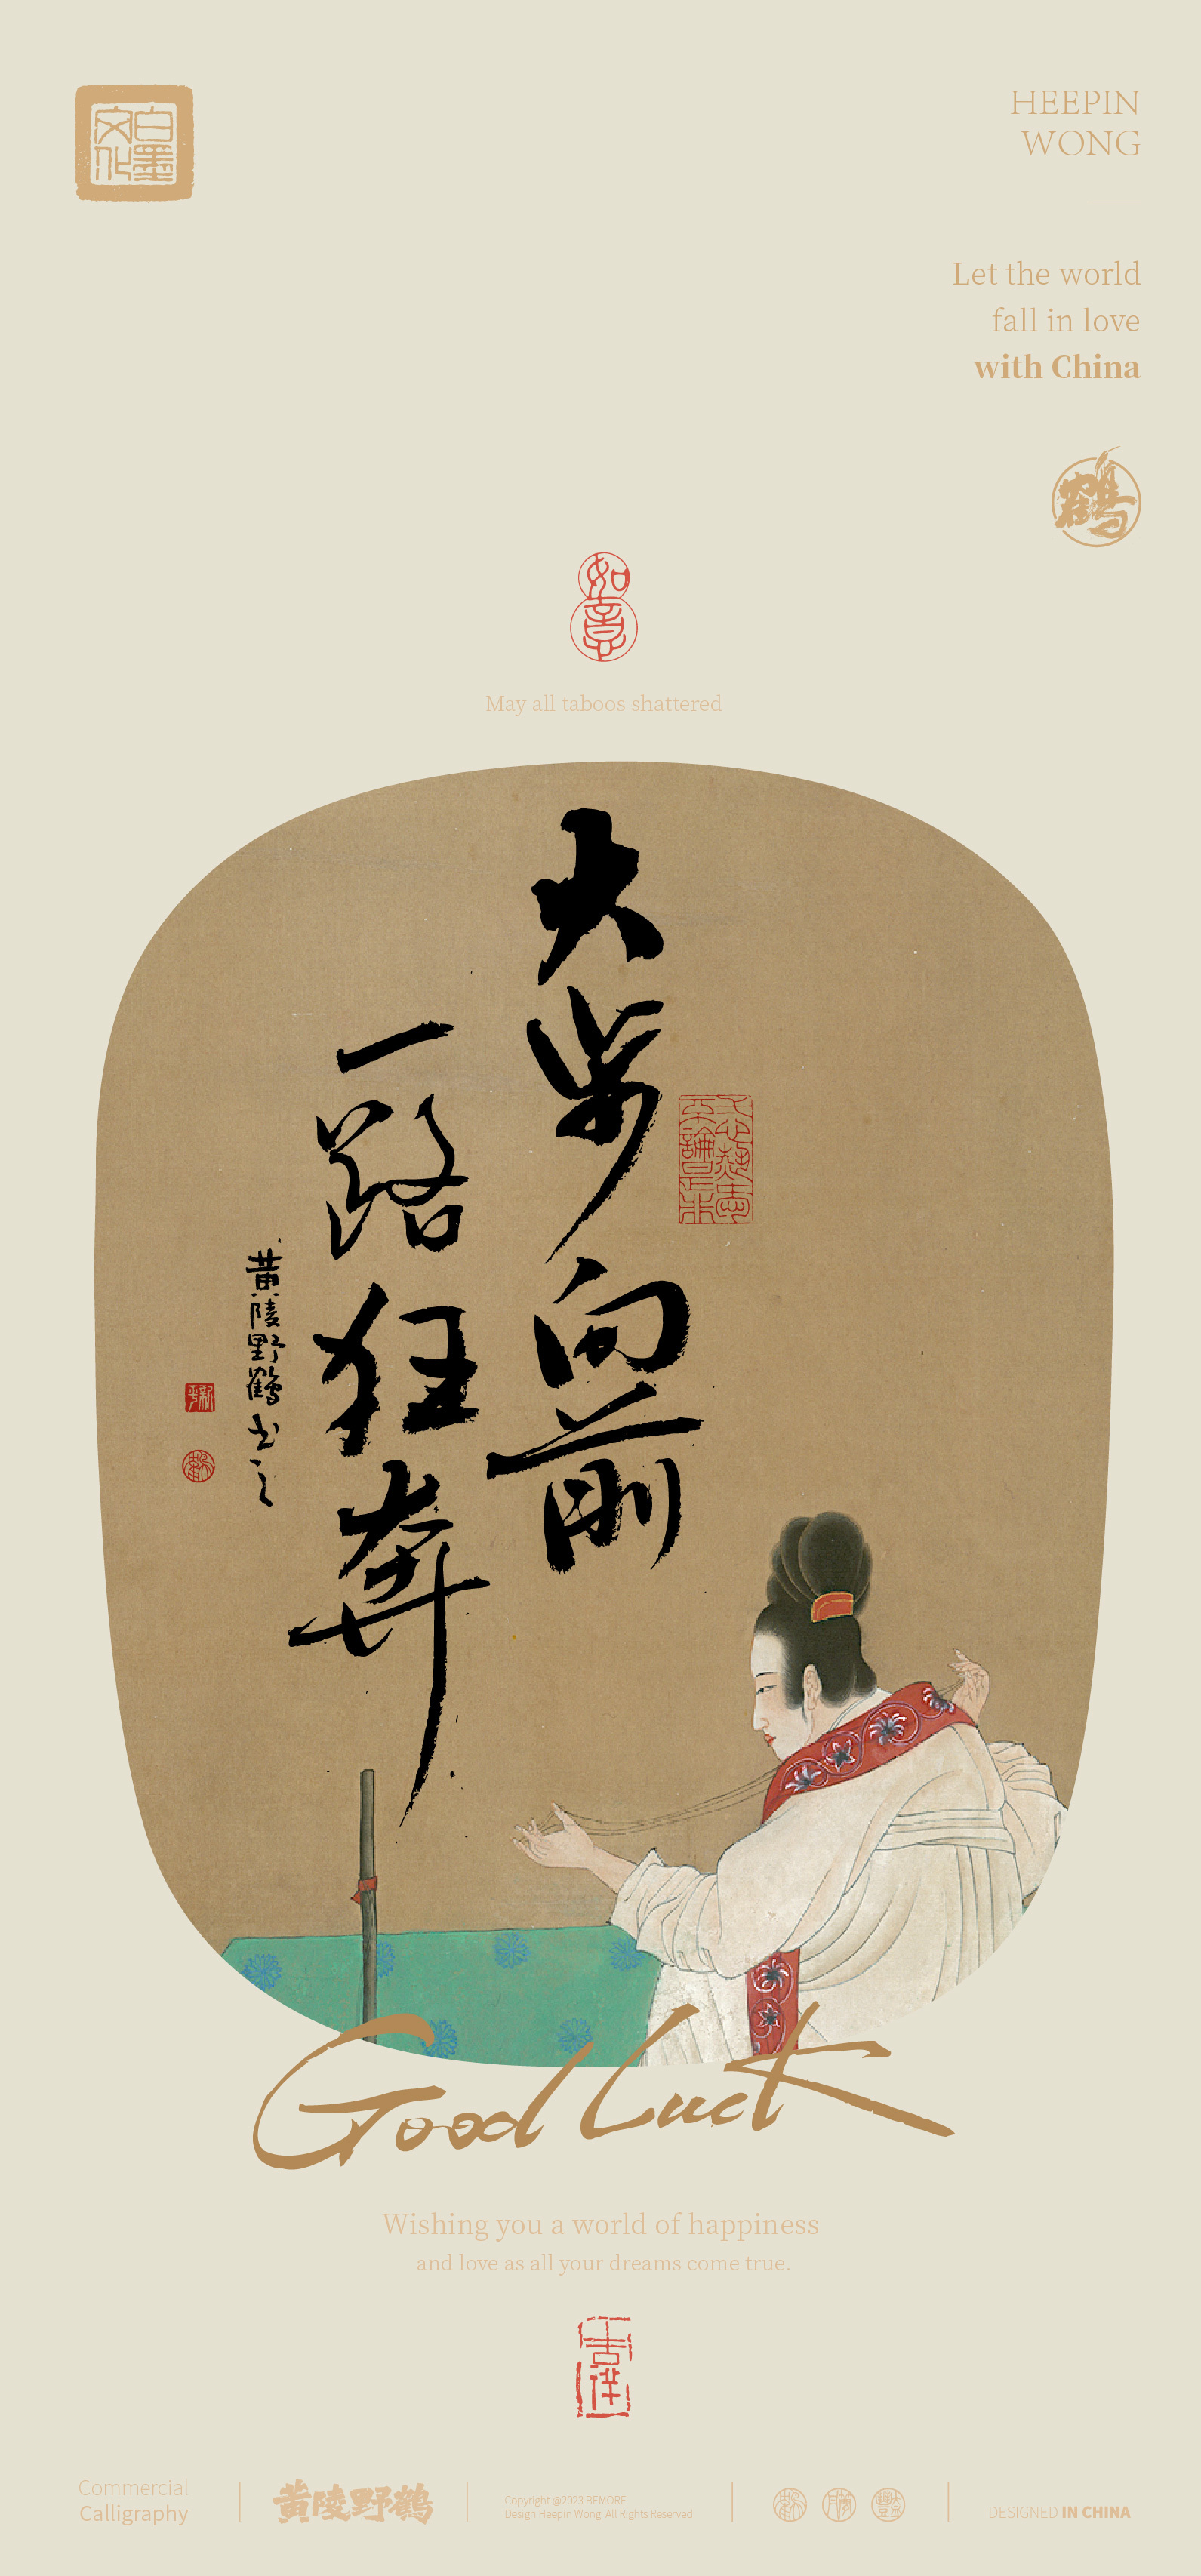 白墨
文化
HEEPIN
WONG
Let the world
fall in love
with China
鶴
如意
May all taboos shattered
大步向前
一路狂奔
黄陵野鶴书之
Good Luck
Wishing you a world of happiness
and love as all your dreams come true.
吉祥
Commercial
Calligraphy
黄陵野鶴
Copyright @2023 BEMORE
Design Heepin Wong All Rights Reserved
DESIGNED IN CHINA